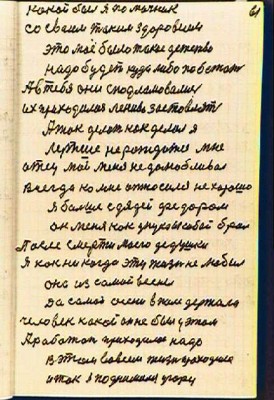 61
какой был я помощник
со своим таким здоровьем
это моё было такое детство
надо будет куда либо побежать
Их приходилось лениво заставлять
А так делать как делал я
Лерше не рождатся мне
отец мой меня не долюбливал
Всегда ко мне относился не хорошо
Я больше с дядей Федором
он меня как с собой брал
После смерти моего дедушки
Я как никогда эту жизнь не любил
она из самой весны
Да самой осени в поле держала
человек какой он не был у этом
А работать приходилось надо
В этом совсем жизнь проходила
и так я поднимался угору